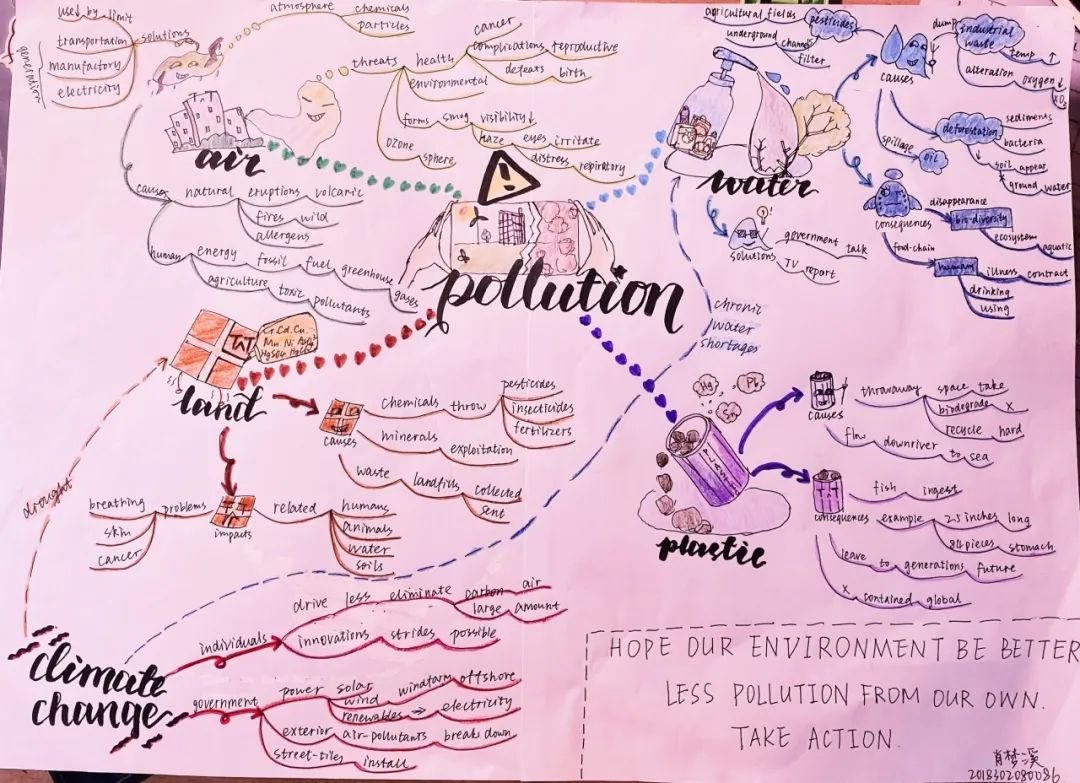 used by limit
transportation
manufactory
electricity
solutions
atmosphere chemicals
particles
threats health cancer
complications reproductive
defeats birth
environmental
forms smog visibility↓
haze eyes irritate
distress respiratory
ozone sphere
air
causes natural eruptions volcanic
fires wild
allergens
human energy fossil fuel greenhouse gases
agriculture toxic pollutants
agricultural fields pesticides
underground channel
filter
dump industrial waste
temp ↑
alteration oxygen ↓
causes
spillage oil
deforestation sediments
bacteria
soil appear
ground water
water
consequences
disappearance bio-diversity
ecosystem aquatic
food-chain human illness contract
drinking
using
solutions
government talk
TV report
pollution
chronic
water
shortages
Cr.Cd.Cu.
land
causes
chemicals throw pesticides
insecticides
fertilizers
minerals exploitation
waste landfills collected
sent
impacts
problems
breathing
skin
cancer
related humans
animals
water
soils
drought
Hg
Pb
Sn
plastic
causes
throwaway space take
biodegrade x
recycle hard
flow downriver to sea
consequences
fish ingest
example 2.5 inches long
84 pieces stomach
leave to generations future
x contained global
climate
change
individuals
drive less eliminate carbon air
large amount
innovations strides possible
government
power solar
wind windfarm offshore
renewables → electricity
exterior air-pollutants break down
street-tiles install
HOPE OUR ENVIRONMENT BE BETTER
LESS POLLUTION FROM OUR OWN.
TAKE ACTION.
肖梦溪
2018302080086